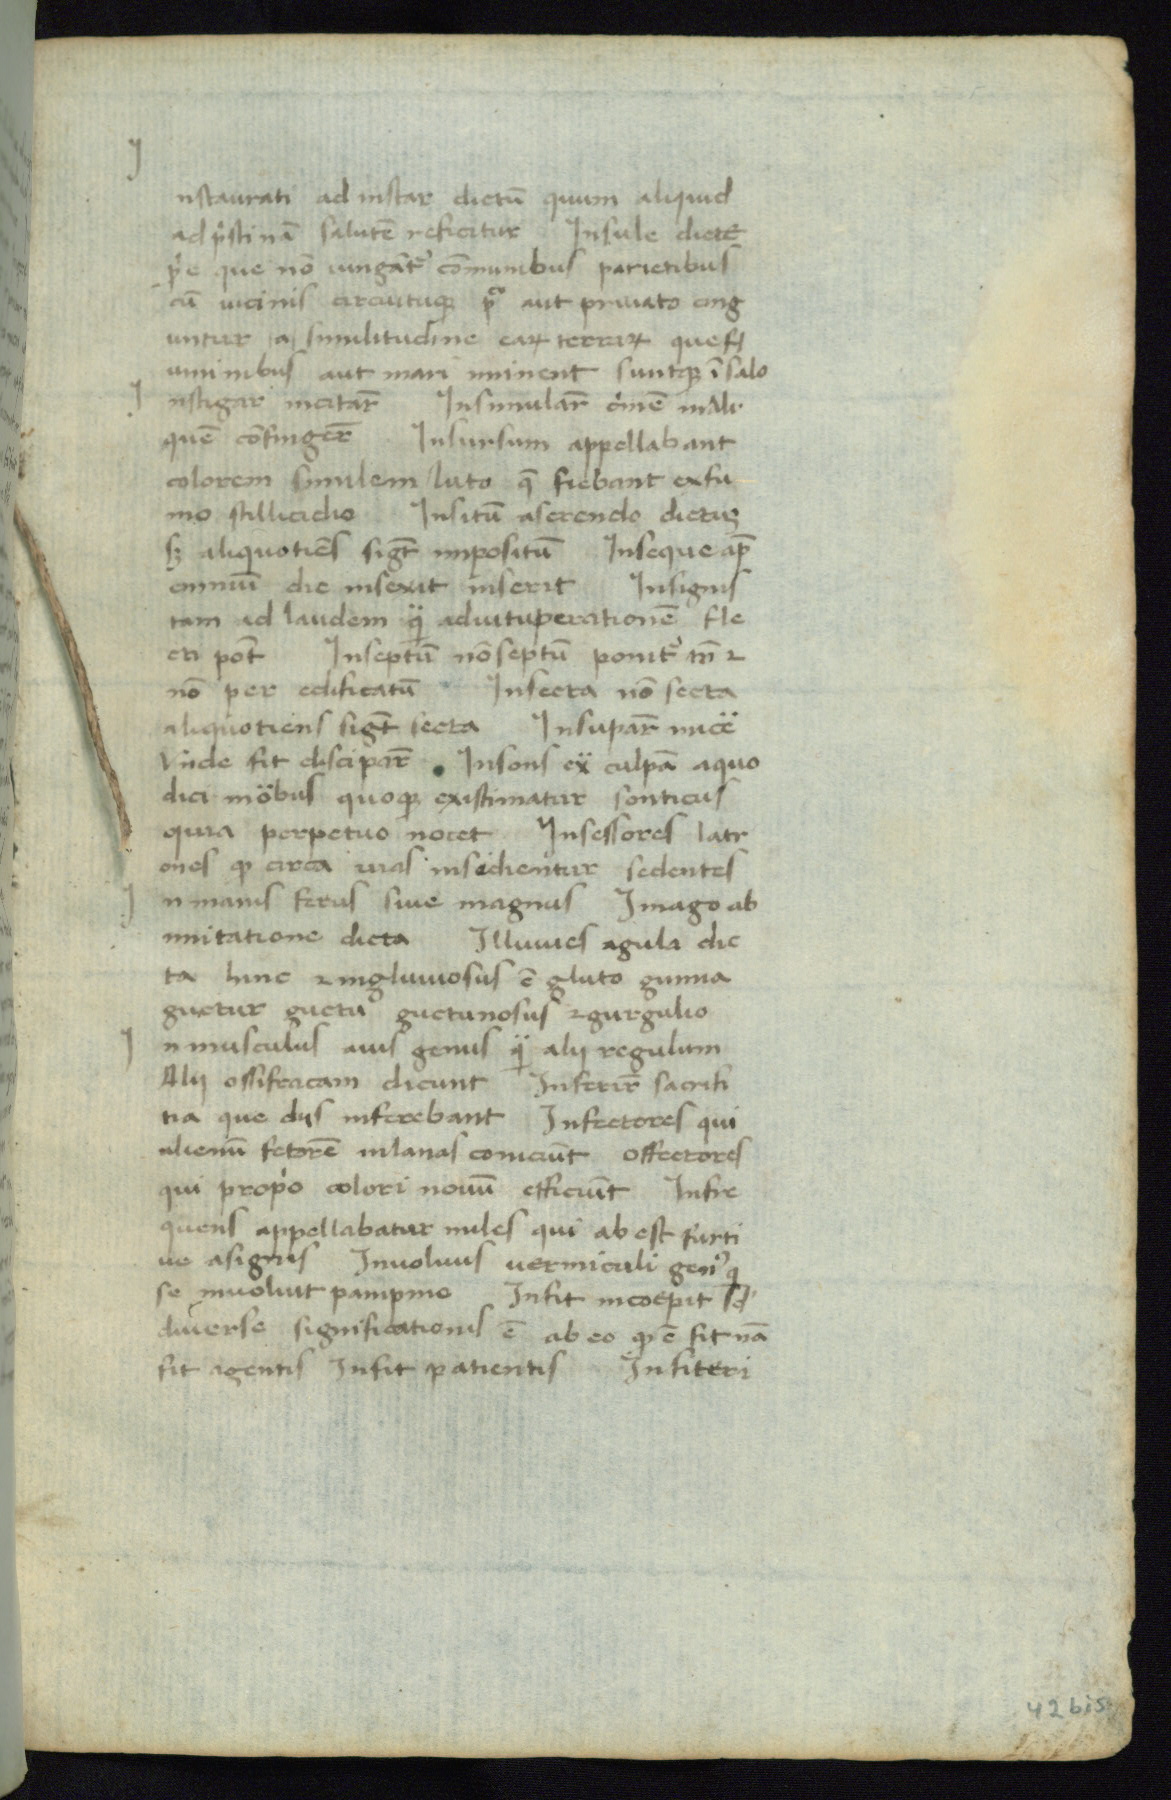 J
nstaurati ad instar dictū quum aliquid
ad p̍stinā salutē reficitur Insule dictę
p̍e que nō iungāt᷒ cōmunibus parietibus
cū uicinis circuituqꝫ pͦ aut priuato cing
untur a similitudine eaꝝ terraꝝ que fl
uminibus aut mari iminent suntqꝫ ī salo
J nstigar incitar̄ Insimular̄ c̍mē in ali
quē confinger̄ Insursum appellabant
colorem similem luto q̄ fiebant ex fu
mo stillicidio Insitū aserendo dictus
sꝫ aliquotiēs sigt̄ impositū Inseque ap̄
ennium dic insexit inserit Insignis
tam ad laudem q̈ ad uituperationē fle
cti pōt Inseptū nō septū ponit᷒ tn̄ ⁊
nō per edificatū Insecta nō secta
aliquotiens sigt̄ secta Insupar̄
Vnde fit discipar̄ Insons ex̄ culpā a quo
dici möbus quoqꝫ existimatur sonticus
quia perpetuo nocet Insessores latr
ones qꝫ circa uias insidientur sedentes
J n manis ferus siue magnus Imago ab
imitatione dicta Illuuies a gula dic
ta hinc ⁊ ingluuiosus ē gluto gumia
guttur guctu᷒ guctunosus ⁊ gurgulio
J n musculus auis genus q̈ alij regulum
Alij ossifracam dicunt Inferir̄ sacrifi
tia que dijs inferebant Infectores qui
alienū fetorē in lanas coniciūt offectores
qui prop̍o colori nouū efficiūt Infre
quens appellabatur miles qui ab est furti
ue a signis Inuoluus uermiculi gen᷒ q̍
se inuoluit pampino Infit incoepit sed
diuerse significationis ē ab eo qꝫ ē fit nā
fit agentis Infit patientis Infiteri
42 bis